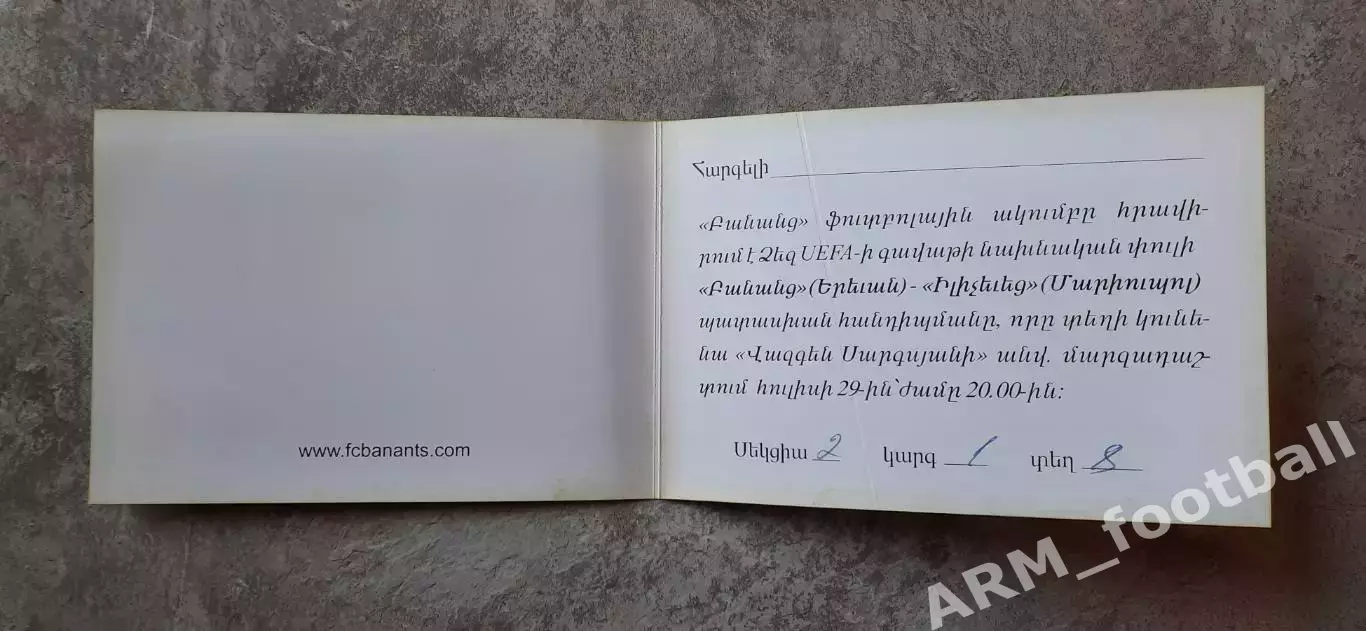 Հարգելի
«Բանանց» ֆուտբոլային ակումբը հրավի-
րում է Ձեզ UEFA-ի գավաթի նախնական փուլի
«Բանանց» (Երեւան) - «Իլիչեւեց» (Մարիուպոլ)
պատասխան հանդիպմանը, որը տեղի կունե-
նա «Վազգեն Սարգսյանի» անվ. մարզադաշ-
տում հուլիսի 29-ին՝ ժամը 20.00-ին:
Սեկցիա 2 կարգ 1 տեղ 8
www.fcbanants.com
ARM_football